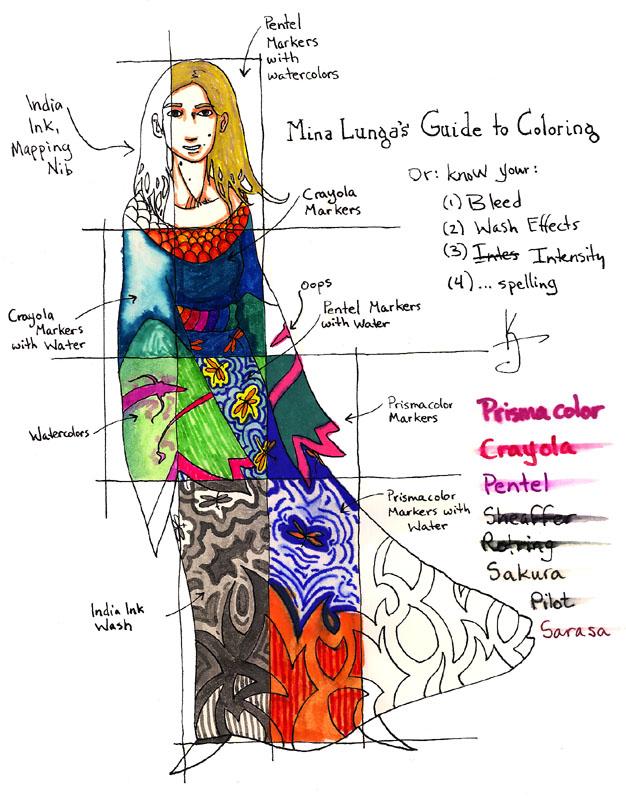 Pentel
Markers
with
watercolors
India
Ink,
Mapping
Nib
Mina Lunga's Guide to Coloring
Or: know your:
(1) Bleed
(2) Wash Effects
(3) Intes Intensity
(4) ... spelling
Crayola
Markers
oops
Crayola
Markers
with Water
Pentel Markers
with Water
Watercolors
Prismacolor
Markers
Prismacolor
Markers with
Water
India Ink
Wash
Prismacolor
Crayola
Pentel
Sheaffer
Rotring
Sakura
Pilot
Sarasa